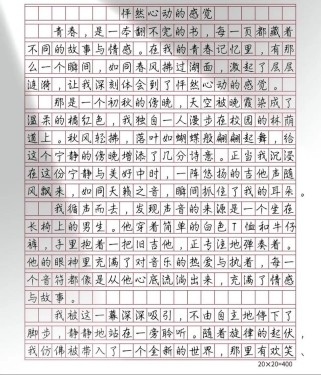 怦然心动的感觉
青春，是一本翻不完的书，每一页都藏着
不同的故事与情感。在我的青春记忆里，有那
么一个瞬间，如同春风拂过湖面，激起了层层
涟漪，让我深刻体会到了怦然心动的感觉。
那是一个初秋的傍晚，天空被晚霞染成了
温柔的橘红色，我独自一人漫步在校园的林荫
道上。秋风轻拂，落叶如蝴蝶般翩翩起舞，给
这个宁静的傍晚增添了几分诗意。正当我沉浸
在这份宁静与美好中时，一阵悠扬的吉他声随
风飘来，如同天籁之音，瞬间抓住了我的耳朵。
我循声而去，发现声音的来源是一个坐在
长椅上的男生。他穿着简单的白色T恤和牛仔
裤。手里抱着一把旧吉他，正专注地弹奏着。
他的眼神里充满了对音乐的热爱与执着，每一
个音符都像是从他心底流淌出来，充满了情感
与故事。
我被这一幕深深吸引，不由自主地停下了
脚步，静静地站在一旁聆听。随着旋律的起伏，
我仿佛被带入了一个全新的世界，那里有欢笑、
20×20=400